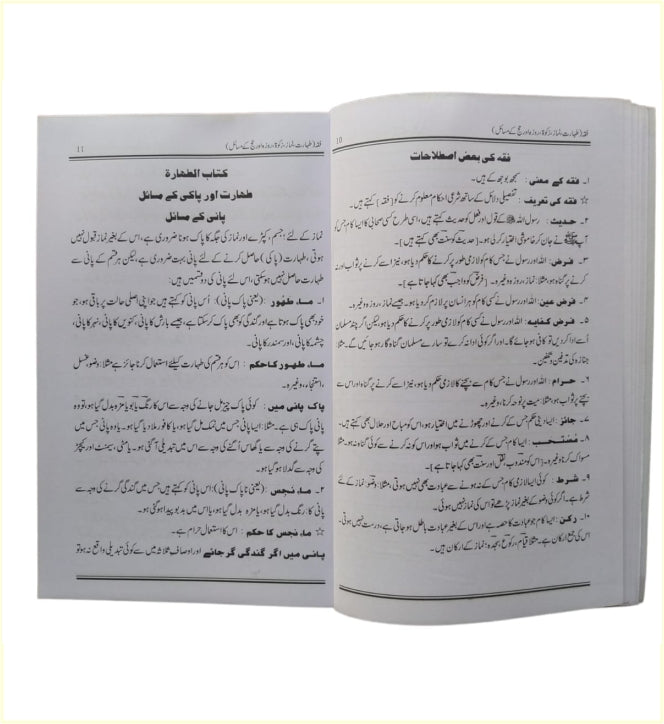 10
فقہ (طہارت، نماز، زکوۃ، روزہ اور حج کے مسائل)
فقہ کی بعض اصطلاحات
۱۔ فقہ کے معنی : سمجھ بوجھ کے ہیں۔
☆ فقہ کی تعریف : تفصیلی دلائل کے ساتھ شرعی احکام معلوم کرنے کو [فقہ] کہتے ہیں۔
۲۔ حدیث : رسول اللہ ﷺ کے قول اور فعل کو حدیث کہتے ہیں، اسی طرح کسی صحابی کا ایسا کام جس کو
آپ ﷺ نے جان کر خاموشی اختیار کر لی ہو۔ [حدیث کو سنت بھی کہتے ہیں]۔
۳۔ فرض : اللہ اور رسول نے جس کام کو لازمی طور پر کرنے کا حکم دیا ہو، نیز اسے کرنے پر ثواب اور نہ
کرنے پر گناہ ہو، مثلا: نماز، روزہ وغیرہ۔ [فرض کو واجب بھی کہا جاتا ہے]
۴۔ فرض عین : اللہ اور رسول نے کسی کام کو ہر انسان پر لازم کر دیا ہو، جیسے نماز، روزہ وغیرہ۔
۵۔ فرض کفایہ : اللہ اور رسول نے کسی کام کو لازمی طور پر کرنے کا حکم دیا ہو، لیکن اگر چند مسلمان
اسے ادا کر دیں تو کافی ہو جائے گا۔ اور اگر کوئی ادا نہ کرے تو سارے مسلمان گناہ گار ہو جائیں گے۔ مثلا:
جنازہ کی تدفین و تکفین۔
۶۔ حرام : اللہ اور رسول نے جس کام سے بچنے کا لازمی حکم دیا ہو، نیز اسے کرنے پر گناہ اور اس سے
بچنے پر ثواب ہو، مثلا: میت پر نوحہ کرنا، وغیرہ۔
۷۔ جائز : ایسا دینی حکم جس کے کرنے اور چھوڑنے میں اختیار ہو، اس کو مباح اور حلال بھی کہتے ہیں۔
۸۔ مُستحب : ایسا کام جس کے کرنے میں ثواب ہو اور اس کو نہ کرنے سے کوئی گناہ نہ ہو۔ مثلا:
مسواک کرنا وغیرہ۔ [اس کو مندوب، نفل اور سنت بھی کہا جاتا ہے]۔
۹۔ شرط : کوئی ایسا لازمی کام جس کے نہ ہونے سے عبادت بھی نہیں ہوتی، مثلا: وضو نماز کے لئے
شرط ہے۔ اگر کوئی وضو کے بغیر نماز پڑھے تو اس کی نماز نہیں ہوتی۔
۱۰۔ رکن : ایسا کام جو عبادت کا حصہ ہے اور اس کے بغیر عبادت باطل ہو جاتی ہے، درست نہیں ہوتی،
اس کی جمع ارکان ہے۔ مثلا: قیام، رکوع، سجدہ: نماز کے ارکان ہیں۔
11
فقہ (طہارت، نماز، زکوۃ، روزہ اور حج کے مسائل)
کتاب الطھارة
طھارت اور پاکی کے مسائل
پانی کے مسائل
نماز کے لئے جسم، کپڑے اور نماز کی جگہ کا پاک ہونا ضروری ہے، اس کے بغیر نماز قبول نہیں
ہوتی، طہارت (پاکی) حاصل کرنے کے لئے پانی بہت ضروری ہے، لیکن ہر قسم کے پانی سے
طہارت حاصل نہیں ہو سکتی، اس لئے پانی کی دو قسمیں ہیں:
۱۔ ماء طھُور : (یعنی پاک پانی): اُس پانی کو کہتے ہیں جو اپنی اصلی حالت پر باقی ہو، جو
خود بھی پاک ہوتا ہے اور گندگی کو بھی پاک کر سکتا ہے، جیسے بارش کا پانی، کنویں کا پانی، نہر کا پانی،
چشمہ کا پانی، اور سمندر کا پانی۔
ماء طھور کا حکم : اس کو ہر قسم کی طہارت کیلئے استعمال کرنا جائز ہے مثلا: وضو، غسل،
استنجاء، وغیرہ۔
پاک پانی میں : کوئی پاک چیز مل جانے کی وجہ سے اس کا رنگ یا بو یا مزہ بدل گیا ہو، تو وہ
پانی پاک ہی ہے۔ مثلا: ایسا پانی جس میں نمک مل گیا ہو، یا کافور ملا دیا گیا ہو۔ یا وہ پانی جس میں
پتے گرنے کی وجہ سے یا گھاس اُگنے کی وجہ سے اس میں تبدیلی آ گئی ہو۔ یا مٹی، سیمنٹ اور کیچڑ
کی وجہ سے گدلا ہو گیا ہو۔
۲۔ ماء نجس : (یعنی ناپاک پانی): اس پانی کو کہتے ہیں جس میں گندگی گرنے کی وجہ سے
پانی کا: رنگ بدل گیا ہو، یا مزہ بدل گیا ہو، یا اس میں بدبو پیدا ہو گئی ہو۔
☆ ماء نجس کا حکم : اس کا استعمال حرام ہے۔
پانی میں اگر گندگی گر جائے اور اوصاف ثلاثہ میں سے کوئی تبدیلی واقع نہ ہو تو